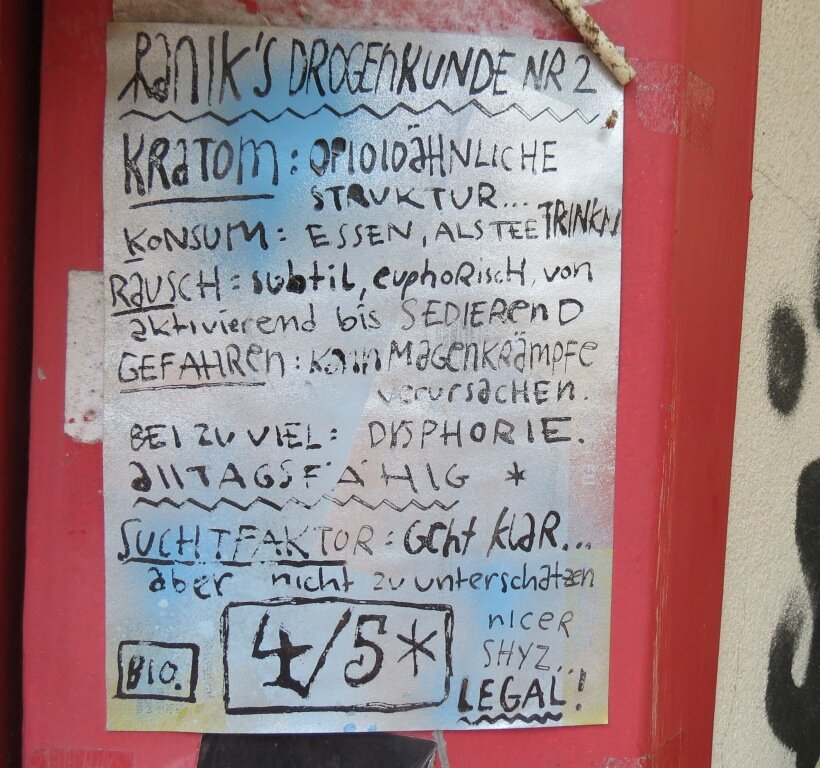 RANIK'S DROGENKUNDE NR 2
KRATOM: OPIOIDÄHNLICHE
STRUKTUR...
KONSUM: ESSEN, ALS TEE TRINKN
RAUSCH: subtil, euphorisch, von
aktivierend bis SEDIEREND
GEFAHREN: Kann MAGENKRÄMPFE
verursachen.
BEI ZU VIEL: DYSPHORIE.
allTAGSFÄHIG *
SUCHTFAKTOR: Geht KLAR...
aber nicht zu unterschätzen
BIO.
4/5*
nicer
SHYZ...
LEGAL!